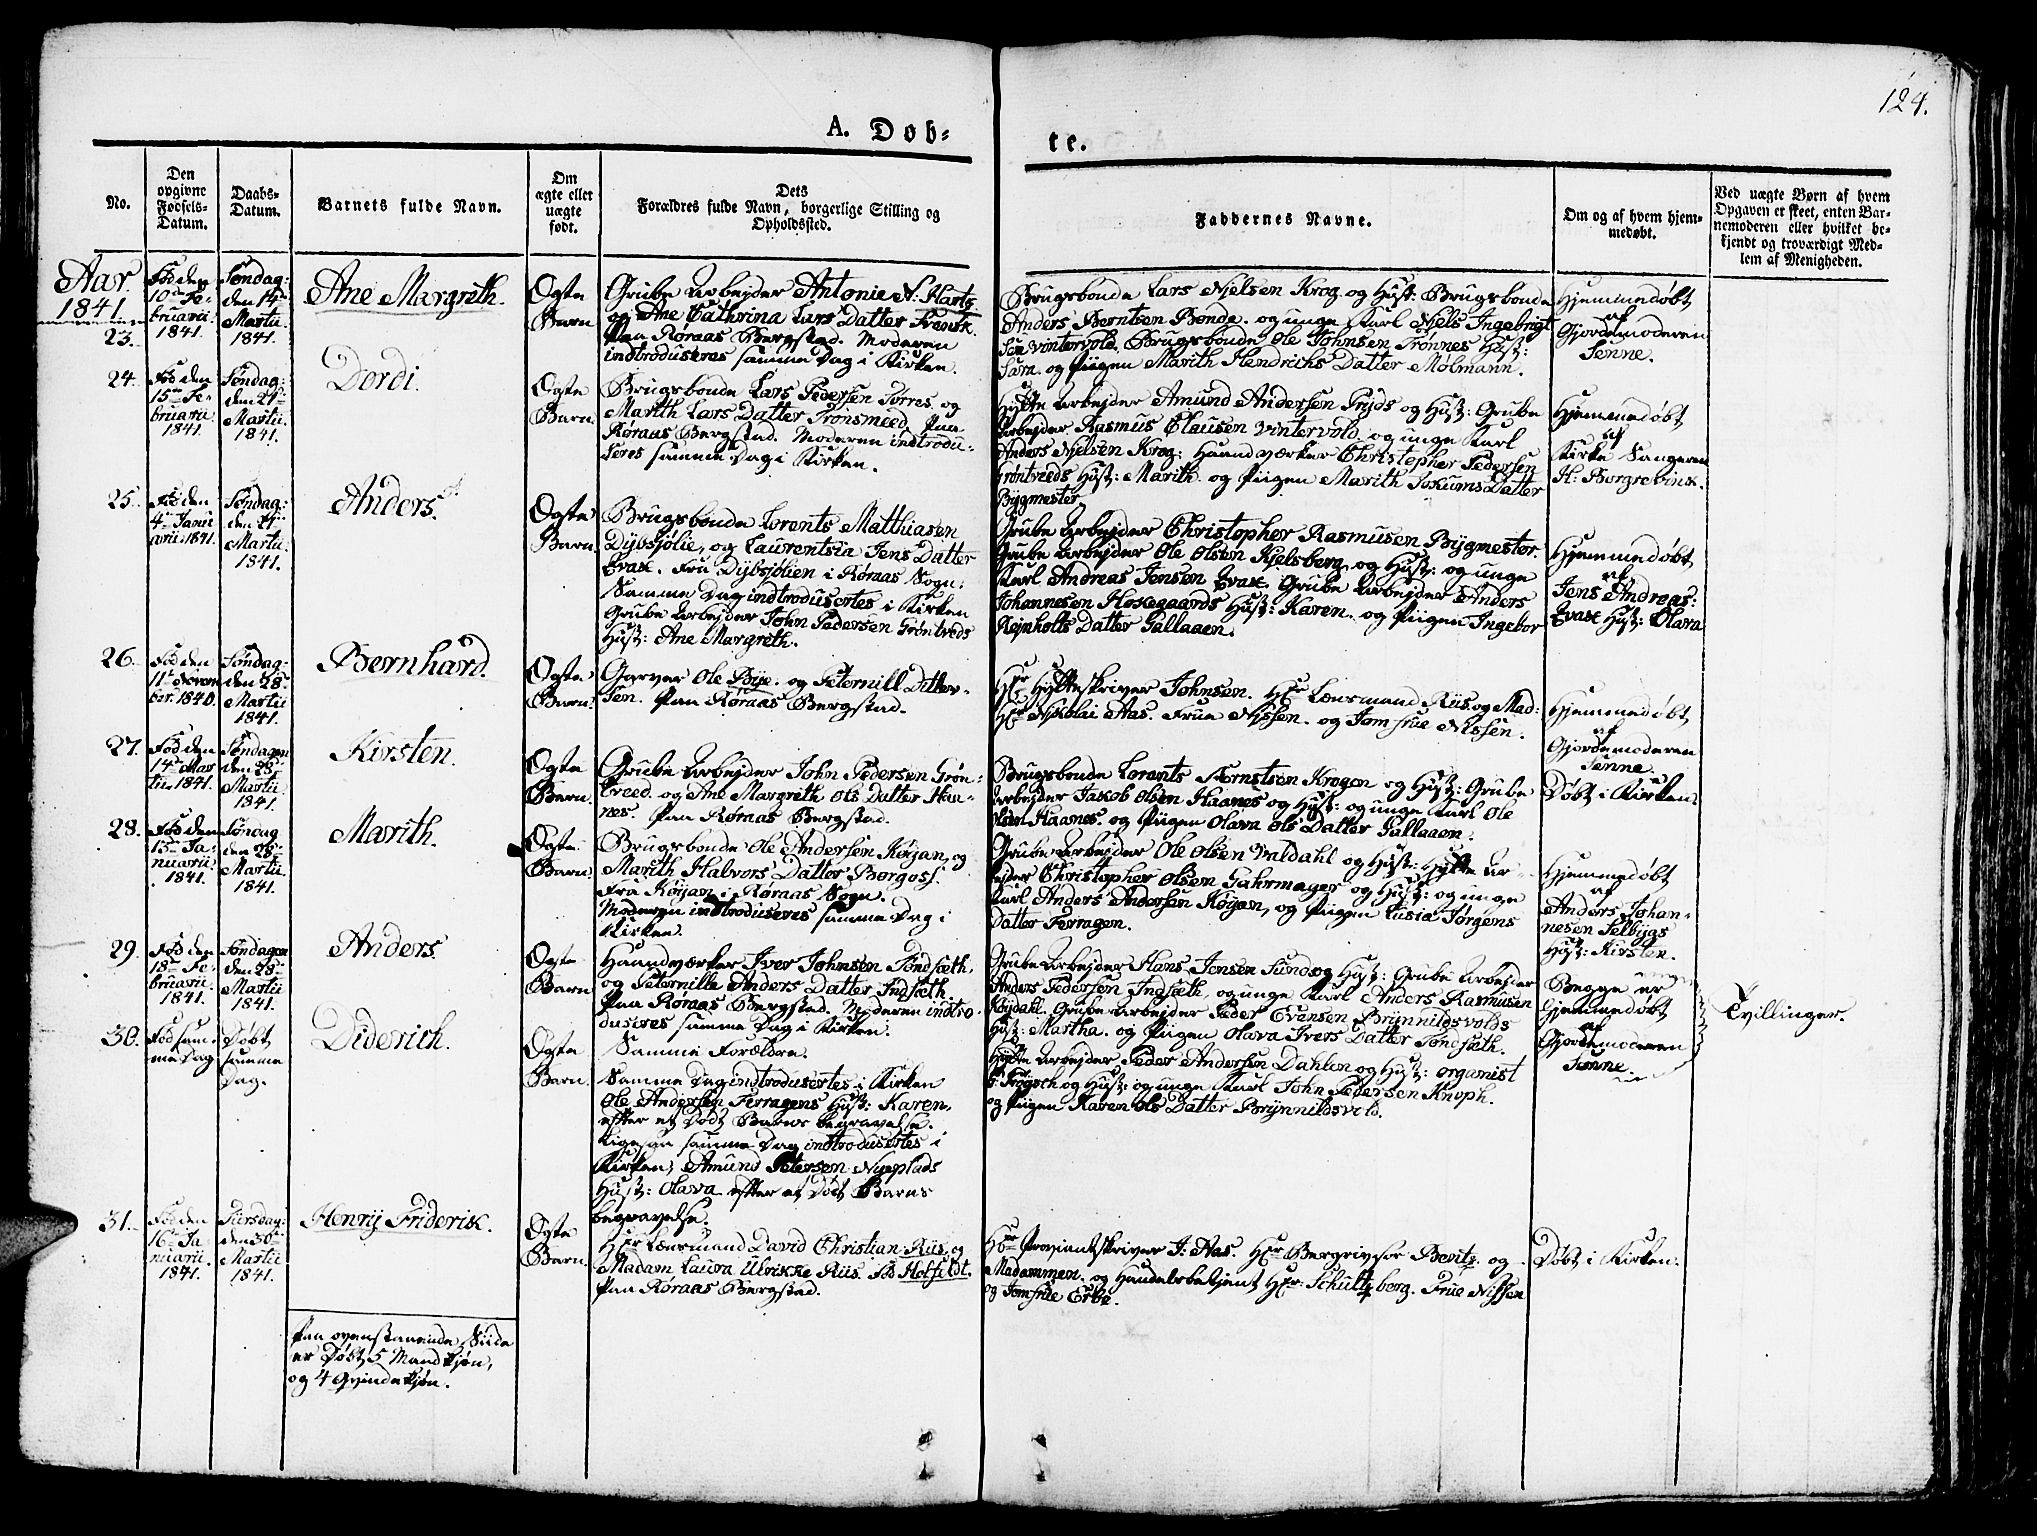 124.
A. Døb-
te.
No.
Den
opgivne
Fødsels-
Datum.
Daabs-
Datum.
Barnets fulde Navn.
Om
ægte eller
uægte
født.
Dets
Forældres fulde Navn, borgerlige Stilling og
Opholdssted.
Faddernes Navne.
Om og af hvem hjem-
medøbt.
Ved uægte Børn af hvem
Opgaven er skeet, enten Bar-
nemoderen eller hvilket be-
kjendt og troværdigt Med-
lem af Menigheden.
Aar
1841.
23.
Fød den
10de Fe-
bruarii
1841.
Søndag:
den 14de
Martii
1841.
Ane Margrith.
Ægte
Barn
Grube Arbejder Antonie N: Hartz
og Ane Cathrina Lars Datter
Paa Røraas Bergstad. Moderen
indtroduseres samme Dag i Kirken.
Brugsbonde Lars Njelsen Krog og Hust: Brugsbonde
Anders Berntsen Bonde. og unge Karl Njels Ingebrigt
Sen Vintervold. Brugsbonde Ole Johnsen Trønnes Hust:
Sara. og Piigen Marith Hendrichs Datter Mølmann.
Hjemmedøbt
af
Gjordemoderen
Senne.
24.
Fød den
15de Fe-
bruarii
1841.
Søndag:
den 21de
Martii
1841.
Dordi.
Ægte
Barn.
Brugsbonde Lars Pedersen Torres, og
Marith Lars Datter Trønsmeed Paa
Røraas Bergstad. Moderen indtrodu-
seres samme Dag i Kirken.
Hytte Arbejder Amund Andersen Pryds og Hust: Grube
Arbejder Rasmus Clausen Vintervold og unge Karl
Anders Njelsen Krog: Haandværker Christopher Pedersen
Grøntveds Hust: Marith og Piigen Marith Jokums Datter
Bygmester
Hjemmedøbt
af
Kirke Sangeren
H: Borgrevink.
25.
Fød den
4de Janu
arii 1841.
Søndag:
den 21de
Martii.
1841.
Anders.
Ægte
Barn.
Brugsbonde Lorents Matthiasen
Dybsjølie, og Laurentsia Jens Datter
Evax. Fra Dybsjølien i Røraas Sogn.
Samme Dag indtrodusertes i Kirken
Grube Arbejder John Pedersen Grøntveds
Hust: Ane Margreth.
Grube Arbejder Christopher Rasmusen Bygmester.
Grube Arbejder Ole Olsen Kjelsberg, og Hust: og unge
Karl Andreas Jensen Evax Grube Arbejder Anders
Johannesen Hokegaards Hust: Karen. og Piigen Ingebor
Rejnholts Datter Gallaaen.
Hjemmedøbt
af
Jens Andreas:
Evax Hust: Olava
26.
Fød den
11te Novem
ber. 1840.
Søndag:
den 28de
Martii
1841.
Bernhard.
Ægte
Barn.
Garver Ole Bye. og Peternill Ditlev-
Sen. Paa Røraas Bergstad.
Hr Hytteskriver Johnsen. Hr Lænsmand Riis og Mad:
Hr Nikolai Aas. Frue Nissen. og Jomfrue Nissen.
Hjemmedøbt
af
Gjordemoderen
Senne.
27.
Fød den
14de Mar
tii 1841.
Søndagen
den 28de
Martii.
1841.
Kirsten.
Ægte
Barn.
Grube Arbejder John Pedersen Grøn-
treed. og Ane Margrith Ols Datter Haa-
nes. Paa Røraas Bergstad.
Brugsbonde Lorants Berntsen Krogen og Hust: Grube
Arbejder Jakob Olsen Haanes og Hust: og unge Karl Ole
Olsen Haanes. og Piigen Olava Ols Datter Gallaaen.
Døbt i Kirken.
28.
Fød den
15de Ja-
nuarii
1841.
Søndag
den 28de
Martii
1841.
Marith.
Ægte
Barn.
Brugsbonde Ole Andersen Køjan, og
Marith Halvors Datter Borgos
Fra Køjan i Røraas Sogn.
Moderen indtroduseres samme Dag i
Kirken.
Grube Arbejder Ole Olsen Valdahl og Hust: Hytte Ar-
bejder Christopher Olsen Gahrmager og Hust: og unge
Karl Anders Andersen Køjan, og Piigen Lusia Jørgens
Datter Ferragen.
Hjemmedøbt
af
Anders Johan-
nesen Selbygs
Hust: Kirsten.
29.
Fød den
18de Fe-
bruarii
1841.
Søndagen
den 28de
Martii
1841.
Anders.
Ægte
Barn
Haandværker Iver Johnsen Sundsæth,
og Peternille Anders Datter Indsæth
Paa Røraas Bergstad. Moderen indtro
duseres samme Dag i Kirken.
Grube Arbejder Hans Jensen Sund og Hust: Grube Arbejder
Anders Pedersen Indsæth, og unge Karl Anders Rasmusen
Køjdahl. Grube Arbejder Peder Evensen Brynnildsvolds
Hust: Martha. og Piigen Olava Ivers Datter Sundsæth.
Begge er
Hjemmedøbt
af
Gjordemoderen
Senne.
Tvillinger.
30.
Fød sam-
me Dag
Døbt
samme
Dag.
Diderich.
Ægte
Barn.
Samme Forældre.
Samme Dag indtrodusertes i Kirken
Ole Andersen Ferragens Hust: Karen,
efter et Dødt Barns begravelse.
Ligesaa samme Dag indtrodusertes i
Kirken, Amund Petersen Nyeplads
Hust: Olava efter et Dødt Barns
begravelse.
Hytte Arbejder Peder Andersen Dahlen og Hust: organist
og Hust: og unge Karl John Pedersen Knoph.
og Piigen Karen Ols Datter Brynnildsvold.
31.
Fød den
16de Ja
nuarii.
1841.
Tiirsdag:
den 30te
Martii
1841.
Henry Friderik.
Ægte
Barn.
Hr Lænsmand David Christian Riis, og
Madam Laura Ulrikke Riis. fød Holfeldt.
Paa Røraas Bergstad.
Hr Proviantskriver J: Aas. Hr Bergrivsor Bentz, og
Madammen. og Handelsbetjent Hr: Schultzberg. Frue Nissen
og Jomfrue Erbe.
Døbt i Kirken.
Paa ovenstaaende Siide
er Døbt 5 Mandkjøn,
og 4 Qvindekjøn.